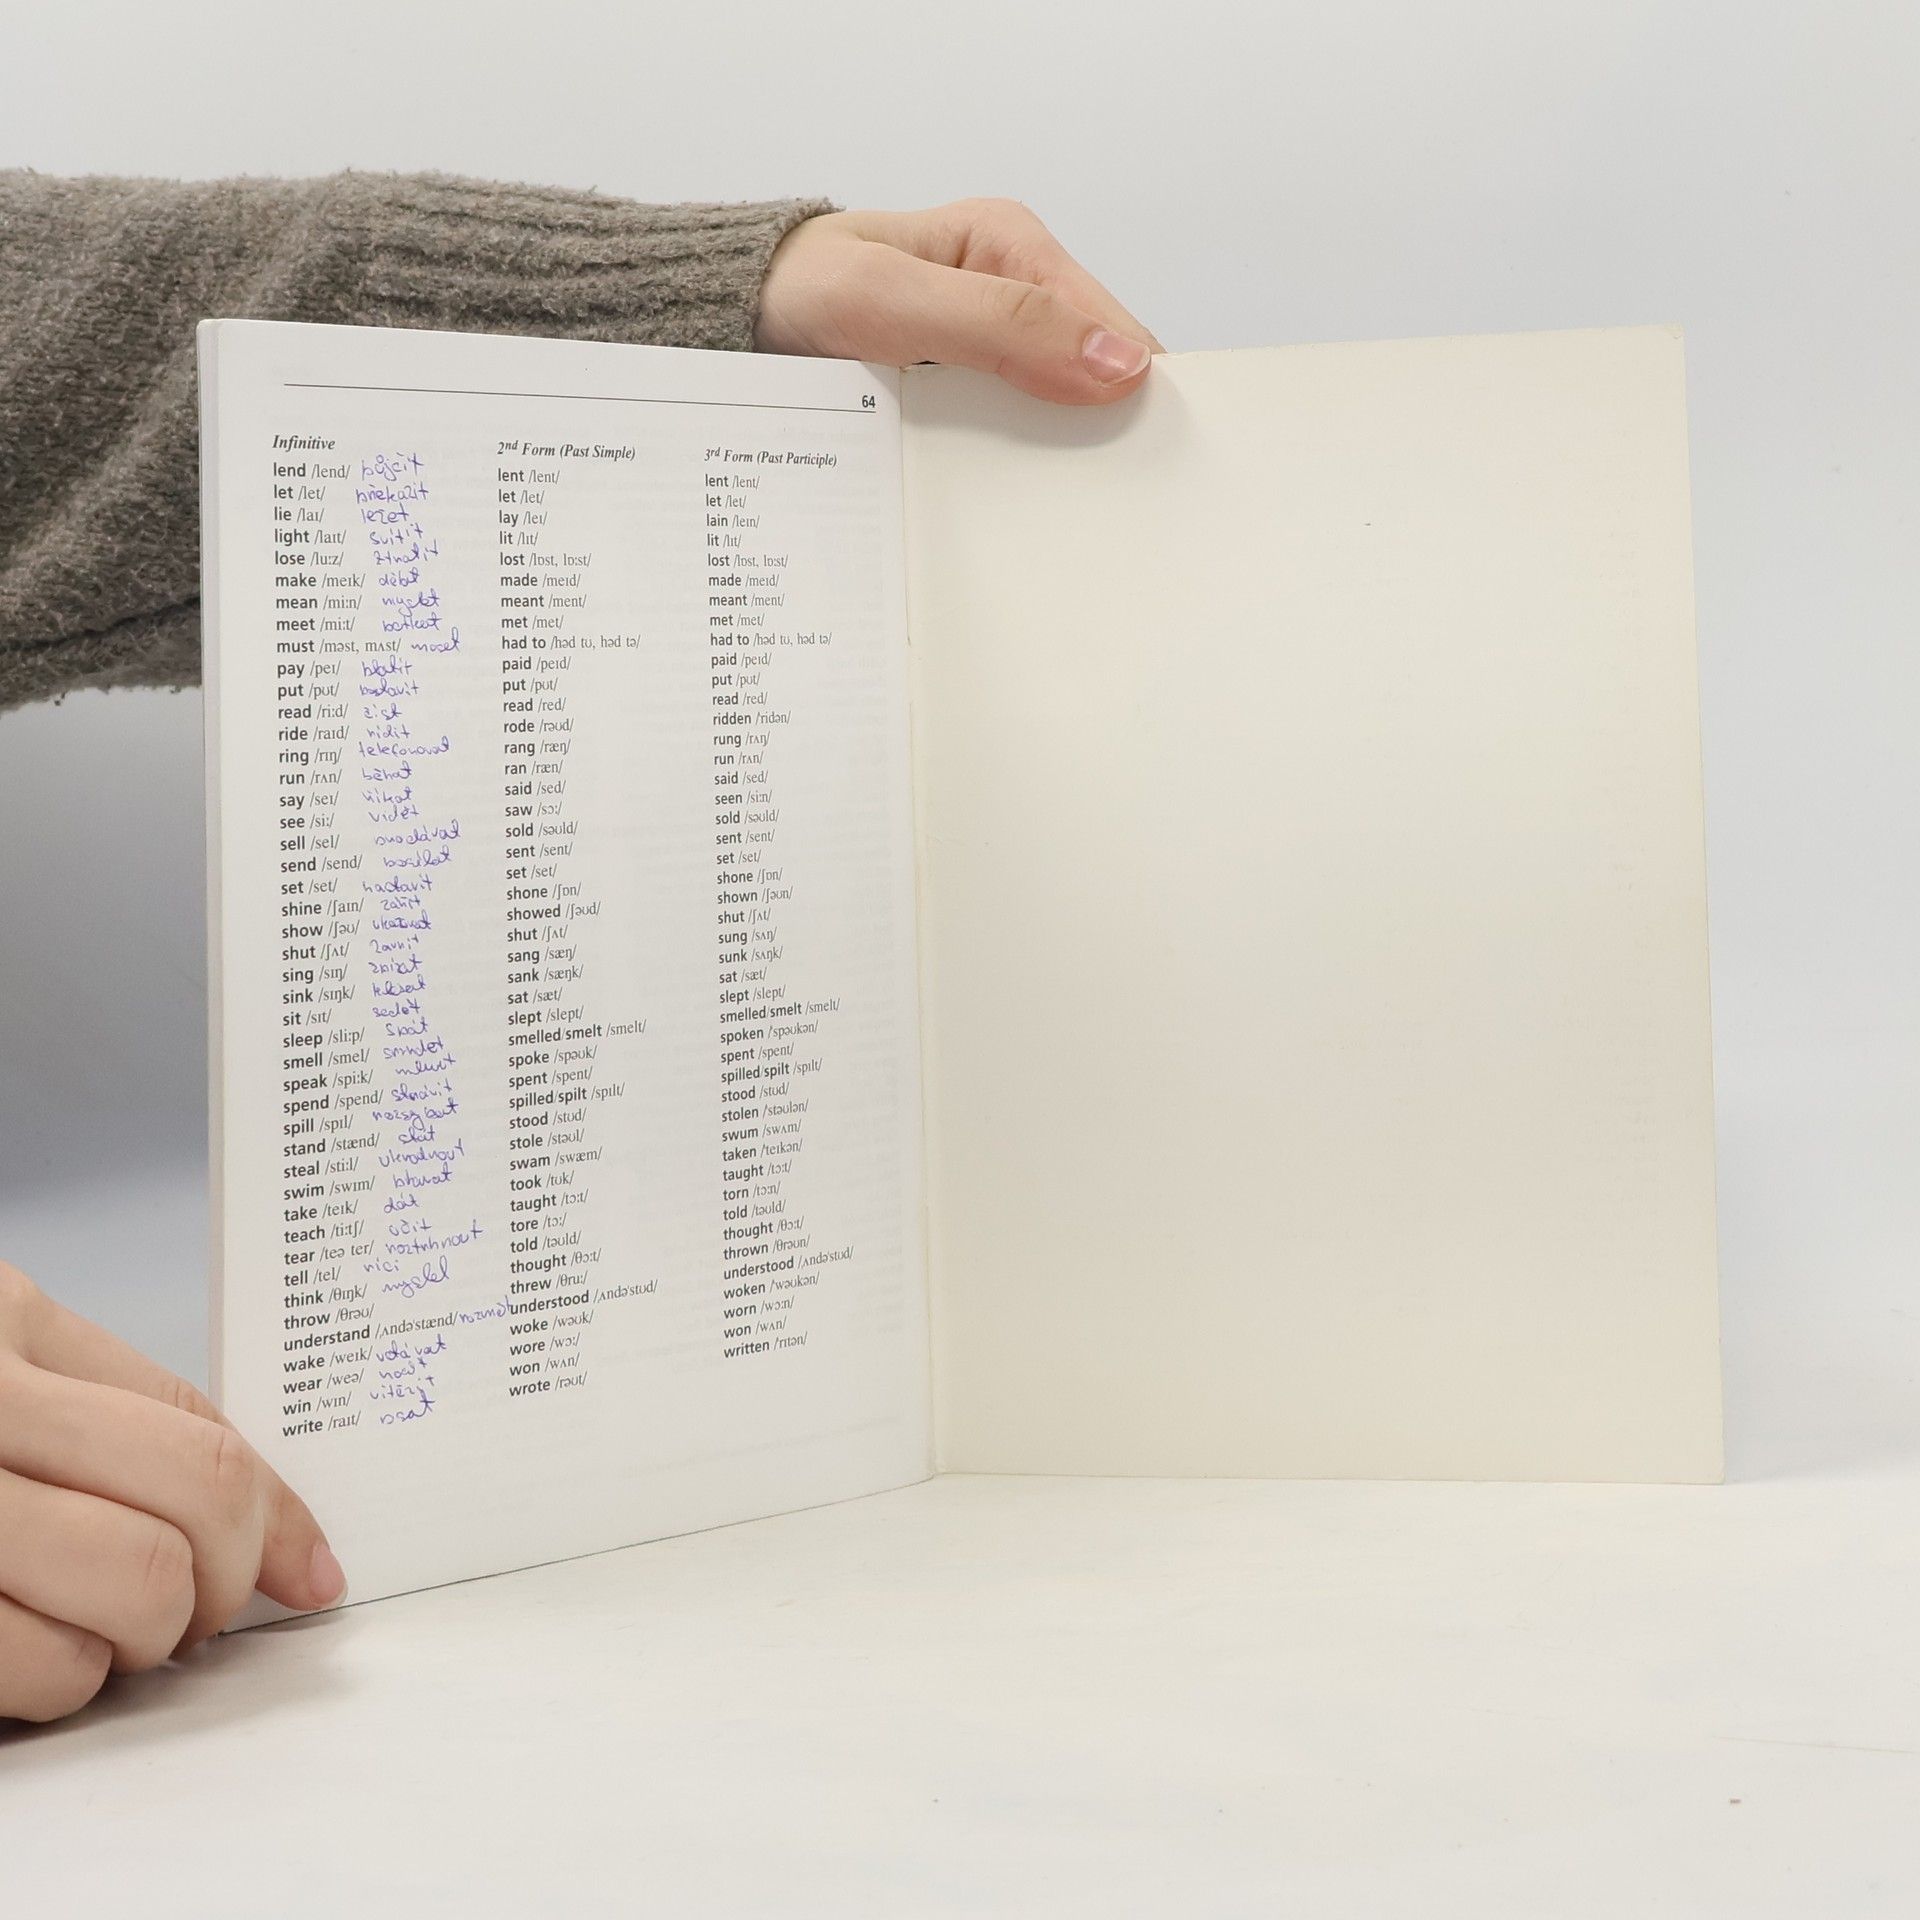 64
Infinitive 2nd Form (Past Simple) 3rd Form (Past Participle)
lend /lend/ půjčit lent /lent/ lent /lent/
let /let/ let /let/ let /let/
lie /laɪ/ ležet lay /leɪ/ lain /leɪn/
light /laɪt/ svítit lit /lɪt/ lit /lɪt/
lose /luːz/ ztratit lost /lɒst, lɒːst/ lost /lɒst, lɒːst/
make /meɪk/ dělat made /meɪd/ made /meɪd/
mean /miːn/ myslet meant /ment/ meant /ment/
meet /miːt/ potkat met /met/ met /met/
must /məst, mʌst/ muset had to /həd tʊ, həd tə/ had to /həd tʊ, həd tə/
pay /peɪ/ platit paid /peɪd/ paid /peɪd/
put /pʊt/ postavit put /pʊt/ put /pʊt/
read /riːd/ číst read /red/ read /red/
ride /raɪd/ řídit rode /rəʊd/ ridden /ˈridən/
ring /rɪŋ/ telefonovat rang /ræŋ/ rung /rʌŋ/
run /rʌn/ běhat ran /ræn/ run /rʌn/
say /seɪ/ říkat said /sed/ said /sed/
see /siː/ vidět saw /sɔː/ seen /siːn/
sell /sel/ prodávat sold /səʊld/ sold /səʊld/
send /send/ posílat sent /sent/ sent /sent/
set /set/ nastavit set /set/ set /set/
shine /ʃaɪn/ zářit shone /ʃɒn/ shone /ʃɒn/
show /ʃəʊ/ ukazovat showed /ʃəʊd/ shown /ʃəʊn/
shut /ʃʌt/ zavřít shut /ʃʌt/ shut /ʃʌt/
sing /sɪŋ/ zpívat sang /sæŋ/ sung /sʌŋ/
sink /sɪŋk/ klesat sank /sæŋk/ sunk /sʌŋk/
sit /sɪt/ sedět sat /sæt/ sat /sæt/
sleep /sliːp/ spát slept /slept/ slept /slept/
smell /smel/ smrdět smelled/smelt /smelt/ smelled/smelt /smelt/
speak /spiːk/ mluvit spoke /spəʊk/ spoken /ˈspəʊkən/
spend /spend/ strávit spent /spent/ spent /spent/
spill /spɪl/ rozsypat spilled/spilt /spɪlt/ spilled/spilt /spɪlt/
stand /stænd/ stát stood /stʊd/ stood /stʊd/
steal /stiːl/ ukradnout stole /stəʊl/ stolen /ˈstəʊlən/
swim /swɪm/ plavat swam /swæm/ swum /swʌm/
take /teɪk/ dát took /tʊk/ taken /ˈteɪkən/
teach /tiːtʃ/ učit taught /tɔːt/ taught /tɔːt/
tear /teə ter/ roztrhnout tore /tɔː/ torn /tɔːn/
tell /tel/ říci told /təʊld/ told /təʊld/
think /θɪŋk/ myslel thought /θɔːt/ thought /θɔːt/
throw /θrəʊ/ threw /θruː/ thrown /θrəʊn/
understand /ˌʌndəˈstænd/ understood /ˌʌndəˈstʊd/ understood /ˌʌndəˈstʊd/
wake /weɪk/ woke /wəʊk/ woken /ˈwəʊkən/
wear /weə/ nosit wore /wɔː/ worn /wɔːn/
win /wɪn/ vítězit won /wʌn/ won /wʌn/
write /raɪt/ psat wrote /rəʊt/ written /ˈrɪtən/